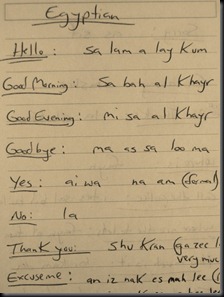 Egyptian
Hello: Sa lam a lay Kum
Good Morning: Sa bah al Khayr
Good Evening: mi sa al Khayr
Goodbye: ma as sa loo ma
Yes: ai wa na am (formal)
No: la
Thank you: Shu Kran (ga zee l
very muc
Excuse me: an iz nak es mah lee (